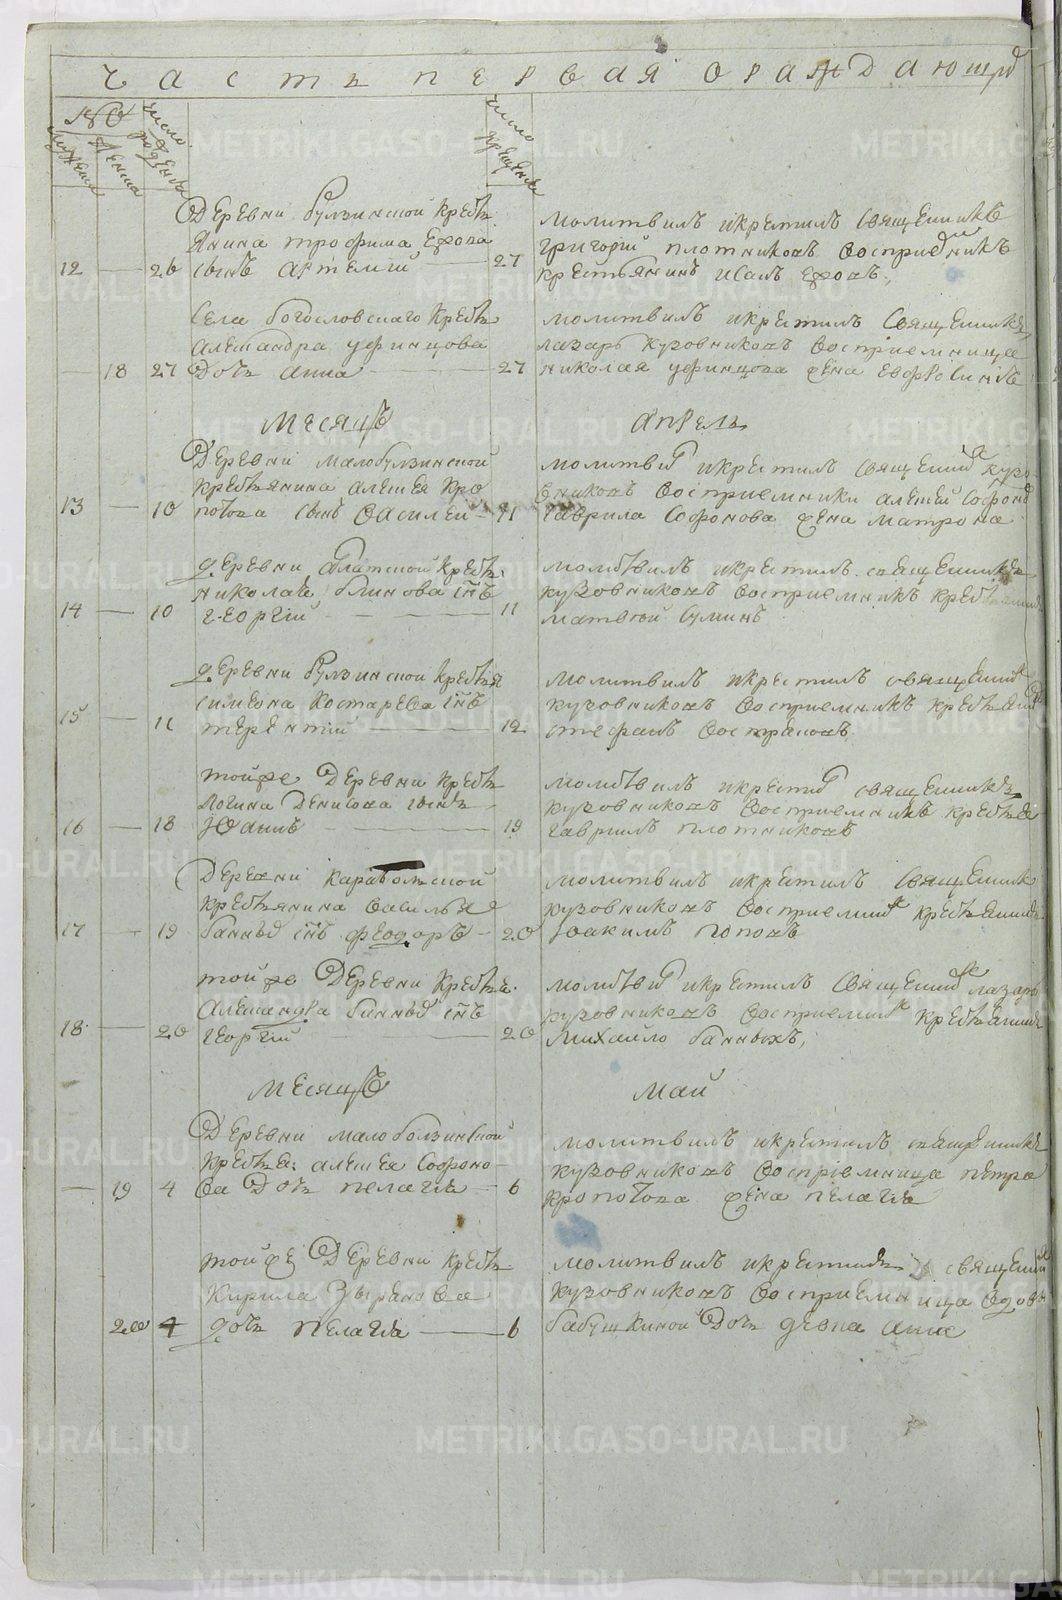 Часть первая ораждающ
№
мужеска
женска
число рожденiя
число крещенiя
Деревни булзинской крестья
янина трофима Ежова
12 — 26 сынъ артемiй — 27
молитвилъ икрестилъ священникъ
григорiй плотниковъ восприемникъ
крестьянинъ исакъ ежовъ,
Села богословскаго крестья
александра уфинцова
— 18 27 дочь анна — 27
молитвилъ икрестилъ священникъ
лазарь кузовниковъ восприемница
николая уфинцова жена евфросинiя
Месяцъ Апрель
Деревни малобулзинской
крестьянина алексея кро
13 — 10 потова сынъ василей — 11
молитвил икрестилъ священник кузо
вниковъ восприемники алексей софонов
гаврила софонова жена матрона
деревни крестья
николая блинова снъ
14 — 10 георгiй — 11
молитвилъ икрестилъ священникъ
кузовниковъ восприемникъ крестьянин
матвей суминъ
деревни булзинской крестья
симеона костарева снъ
15 — 11 терентiй — 12
молитвилъ икрестилъ священник
кузовниковъ восприемникъ крестьянин
стефанъ востряковъ,
тойже деревни крестья
логина денисова сынъ
16 — 18 Iоаннъ — 19
молитвилъ икрестил священникъ
кузовниковъ восприемникъ крестья
гаврилъ плотниковъ
деревни карабольской
крестьянина василья
17 — 19 банных снъ феодоръ — 20
молитвилъ икрестилъ священник
кузовниковъ восприемник крестьянин
Iоакимъ поповъ
тойже деревни крестья
александра банных снъ
18 — 20 георгiй — 20
молитвил икрестилъ священник лазарь
кузовниковъ восприемник крестьянин
михайло банныхъ,
Месяцъ май
Деревни малобулзинской
крестья: алексея софоно
— 19 4 ва дочь пелагiя — 6
молитвилъ икрестилъ священникъ
кузовниковъ восприемница петра
кропотова жена пелагiя
тойже деревни крестья
кирила зырянова
20 4 дочь пелагiя — 6
молитвилъ икрестилъ священник
кузовниковъ восприемница
бабушкиной дочь девка анна
METRIKI.GASO-URAL.RU